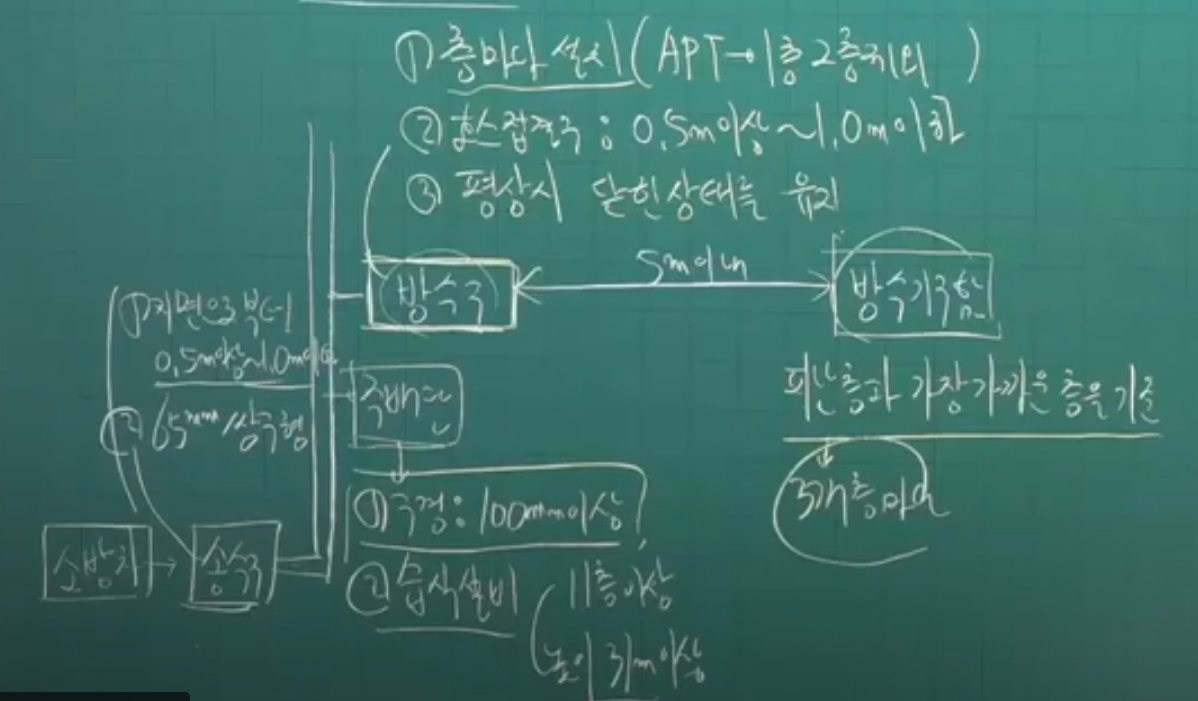 ① 층마다 설치 (APT→1층2층제외 )
② 호스접결구 : 0.5m이상 ~1.0m이하
③ 평상시 닫힌상태를 유지
방수구
5m이내
방수기구함
① 지면으로부터
0.5m이상~1.0m이하
② 65mm/쌍구형
주배관
피난층과 가장가까운 층을 기준
3개층마다
① 구경: 100mm이상
소방차 → 송수구
② 습식설비
11층이상
높이 31m이상